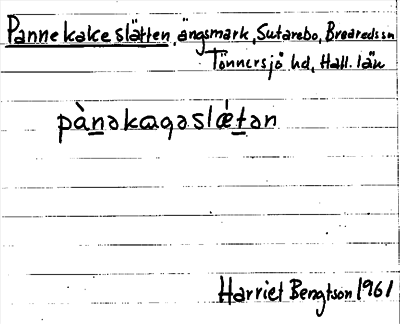 Pannekakeslätten, ängsmark, Sutarebo, Breareds sn
Tönnersjö hd, Hall. län
pànəkagəslǽtən
Harriet Bengtson 1961